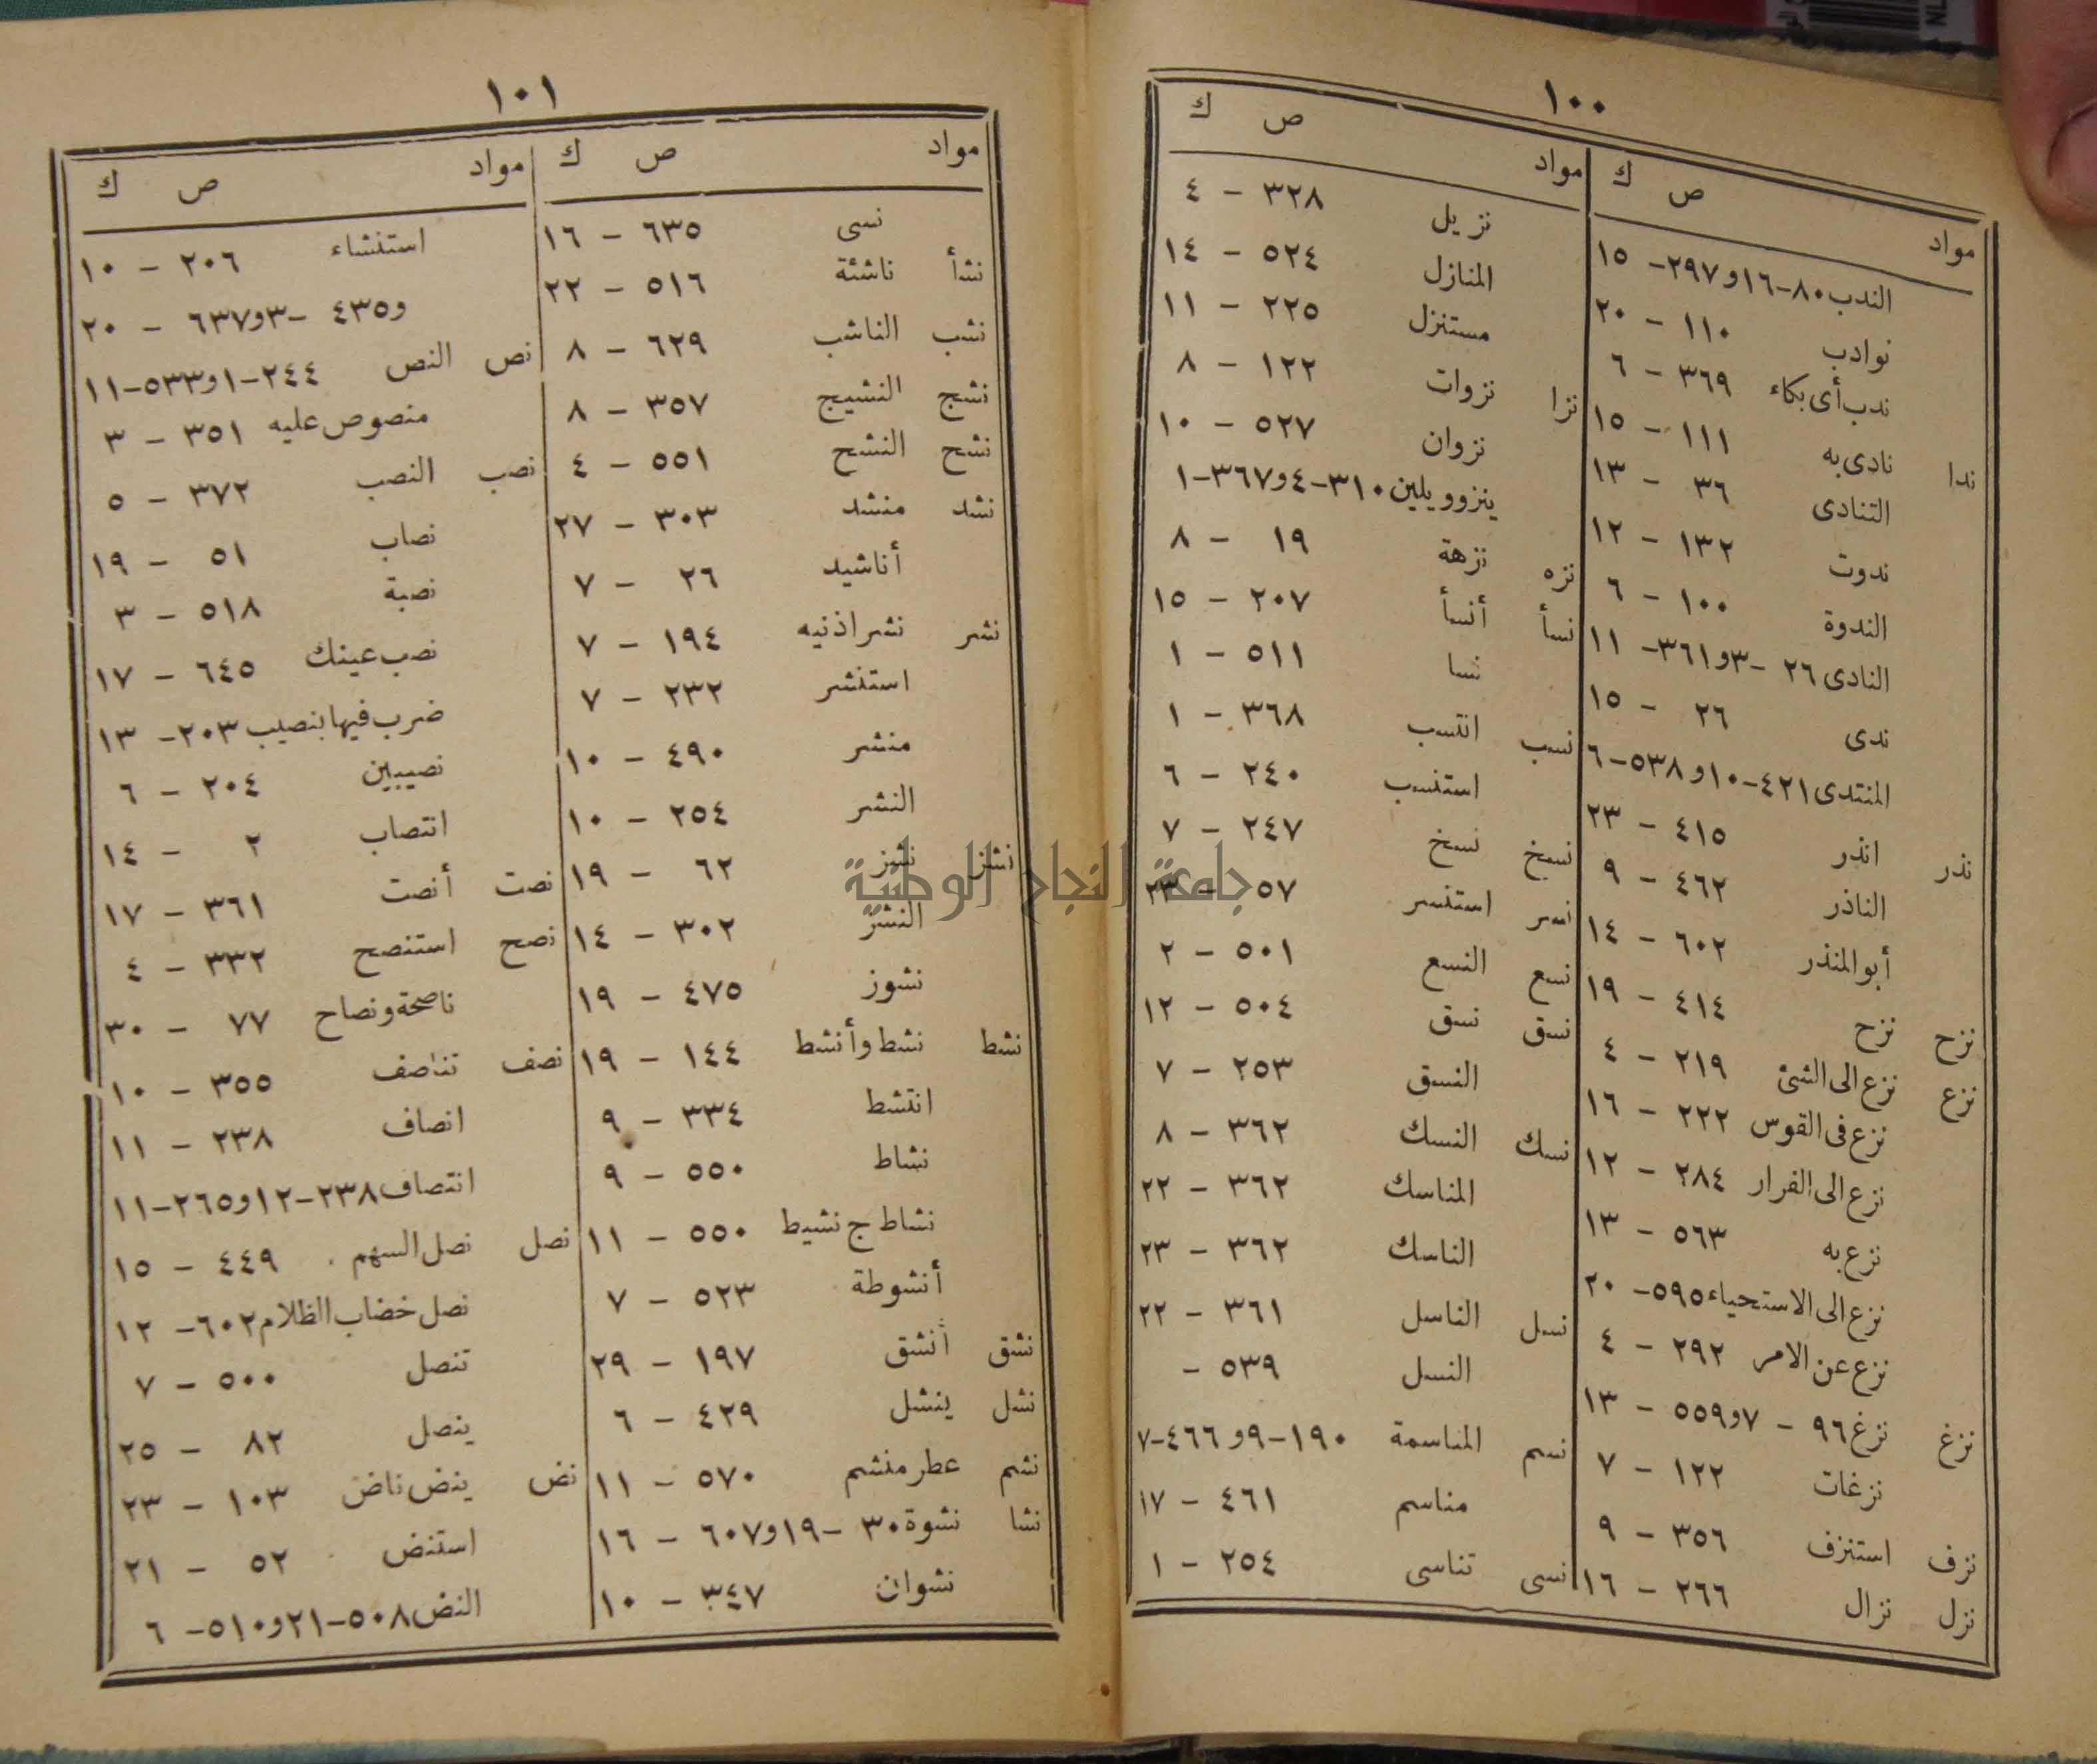 ١٠٠
مواد ص ك
الندب ٨٠-١٦ و٢٩٧- ١٥
نوادب ١١٠ - ٢٠
ندب أى بكاء ٣٦٩ - ٦
ندا نادى به ١١١ - ١٥
التنادى ٣٦ - ١٣
ندوت ١٣٢ - ١٢
الندوة ١٠٠ - ٦
النادى ٢٦ -٣ و٣٦١- ١١
ندى ٢٦ - ١٥
المنتدى ٤٢١-١٠ و٥٣٨-٦
نذر انذر ٤١٥ - ٢٣
الناذر ٤٦٢ - ٩
أبو المنذر ٦٠٢ - ١٤
نزح نزح ٤١٤ - ١٩
نزع نزع الى الشئ ٢١٩ - ٤
نزع فى القوس ٢٢٢ - ١٦
نزع الى الفرار ٢٨٤ - ١٢
نزع به ٥٦٣ - ١٣
نزع الى الاستحياء ٥٩٥- ٢٠
نزع عن الامر ٢٩٢ - ٤
نزغ نزغ ٩٦ - ٧ و٥٥٩ - ١٣
نزغات ١٢٢ - ٧
نزف استنزف ٣٥٦ - ٩
نزل نزال ٢٦٦ - ١٦
مواد ص ك
نزيل ٣٢٨ - ٤
المنازل ٥٢٤ - ١٤
مستنزل ٢٢٥ - ١١
نزا نزوات ١٢٢ - ٨
نزوان ٥٢٧ - ١٠
ينزو ويلين ٣١٠-٤ و٣٦٧-١
نزه نزهة ١٩ - ٨
نسأ أنسأ ٢٠٧ - ١٥
نسا ٥١١ - ١
نسب انتسب ٣٦٨ - ١
استنسب ٢٤٠ - ٦
نسخ نسخ ٢٤٧ - ٧
نسر استنسر ٥٧ - ٢٣
نسع النسع ٥٠١ - ٢
نسق نسق ٥٠٤ - ١٢
النسق ٢٥٣ - ٧
نسك النسك ٣٦٢ - ٨
المناسك ٣٦٢ - ٢٢
الناسك ٣٦٢ - ٢٣
نسل الناسل ٣٦١ - ٢٢
النسل ٥٣٩ -
نسم المناسمة ١٩٠-٩ و٤٦٦-٧
مناسم ٤٦١ - ١٧
نسى تناسى ٢٥٤ - ١
١٠١
مواد ص ك
نسى ٦٣٥ - ١٦
نشأ ناشئة ٥١٦ - ٢٢
نشب الناشب ٦٢٩ - ٨
نشج النشيج ٣٥٧ - ٨
نشح النشح ٥٥١ - ٤
نشد منشد ٣٠٣ - ٢٧
أناشيد ٢٦ - ٧
نشر نشر اذنيه ١٩٤ - ٧
استنشر ٢٣٢ - ٧
منشر ٤٩٠ - ١٠
النشر ٢٥٤ - ١٠
نشز نشز ٦٢ - ١٩
النشز ٣٠٢ - ١٤
نشوز ٤٧٥ - ١٩
نشط نشط وأنشط ١٤٤ - ١٩
انتشط ٣٣٤ - ٩
نشاط ٥٥٠ - ٩
نشاط ج نشيط ٥٥٠ - ١١
أنشوطة ٥٢٣ - ٧
نشق أنشق ١٩٧ - ٢٩
نشل ينشل ٤٢٩ - ٦
نشم عطر منشم ٥٧٠ - ١١
نشا نشوة ٣٠ -١٩ و٦٠٧ - ١٦
نشوان ٣٤٧ - ١٠
مواد ص ك
استنشاء ٢٠٦ - ١٠
و٤٣٥ -٣ و٦٣٧ - ٢٠
نص النص ٢٤٤-١ و٥٣٣-١١
منصوص عليه ٣٥١ - ٣
نصب النصب ٣٧٢ - ٥
نصاب ٥١ - ١٩
نصبة ٥١٨ - ٣
نصب عينك ٦٤٥ - ١٧
ضرب فيها بنصيب ٢٠٣- ١٣
نصيبين ٢٠٤ - ٦
انتصاب ٢ - ١٤
نصت أنصت ٣٦١ - ١٧
نصح استنصح ٣٣٢ - ٤
ناصحة ونصاح ٧٧ - ٣٠
نصف تناصف ٣٥٥ - ١٠
انصاف ٢٣٨ - ١١
انتصاف ٢٣٨-١٢ و٢٦٥-١١
نصل نصل السهم ٤٤٩ - ١٥
نصل خضاب الظلام ٦٠٢- ١٢
تنصل ٥٠٠ - ٧
ينصل ٨٢ - ٢٥
نض ينض ناض ١٠٣ - ٢٣
استنض ٥٢ - ٢١
النض ٥٠٨-٢١ و٥١٠- ٦
جامعة النجاح الوطنية